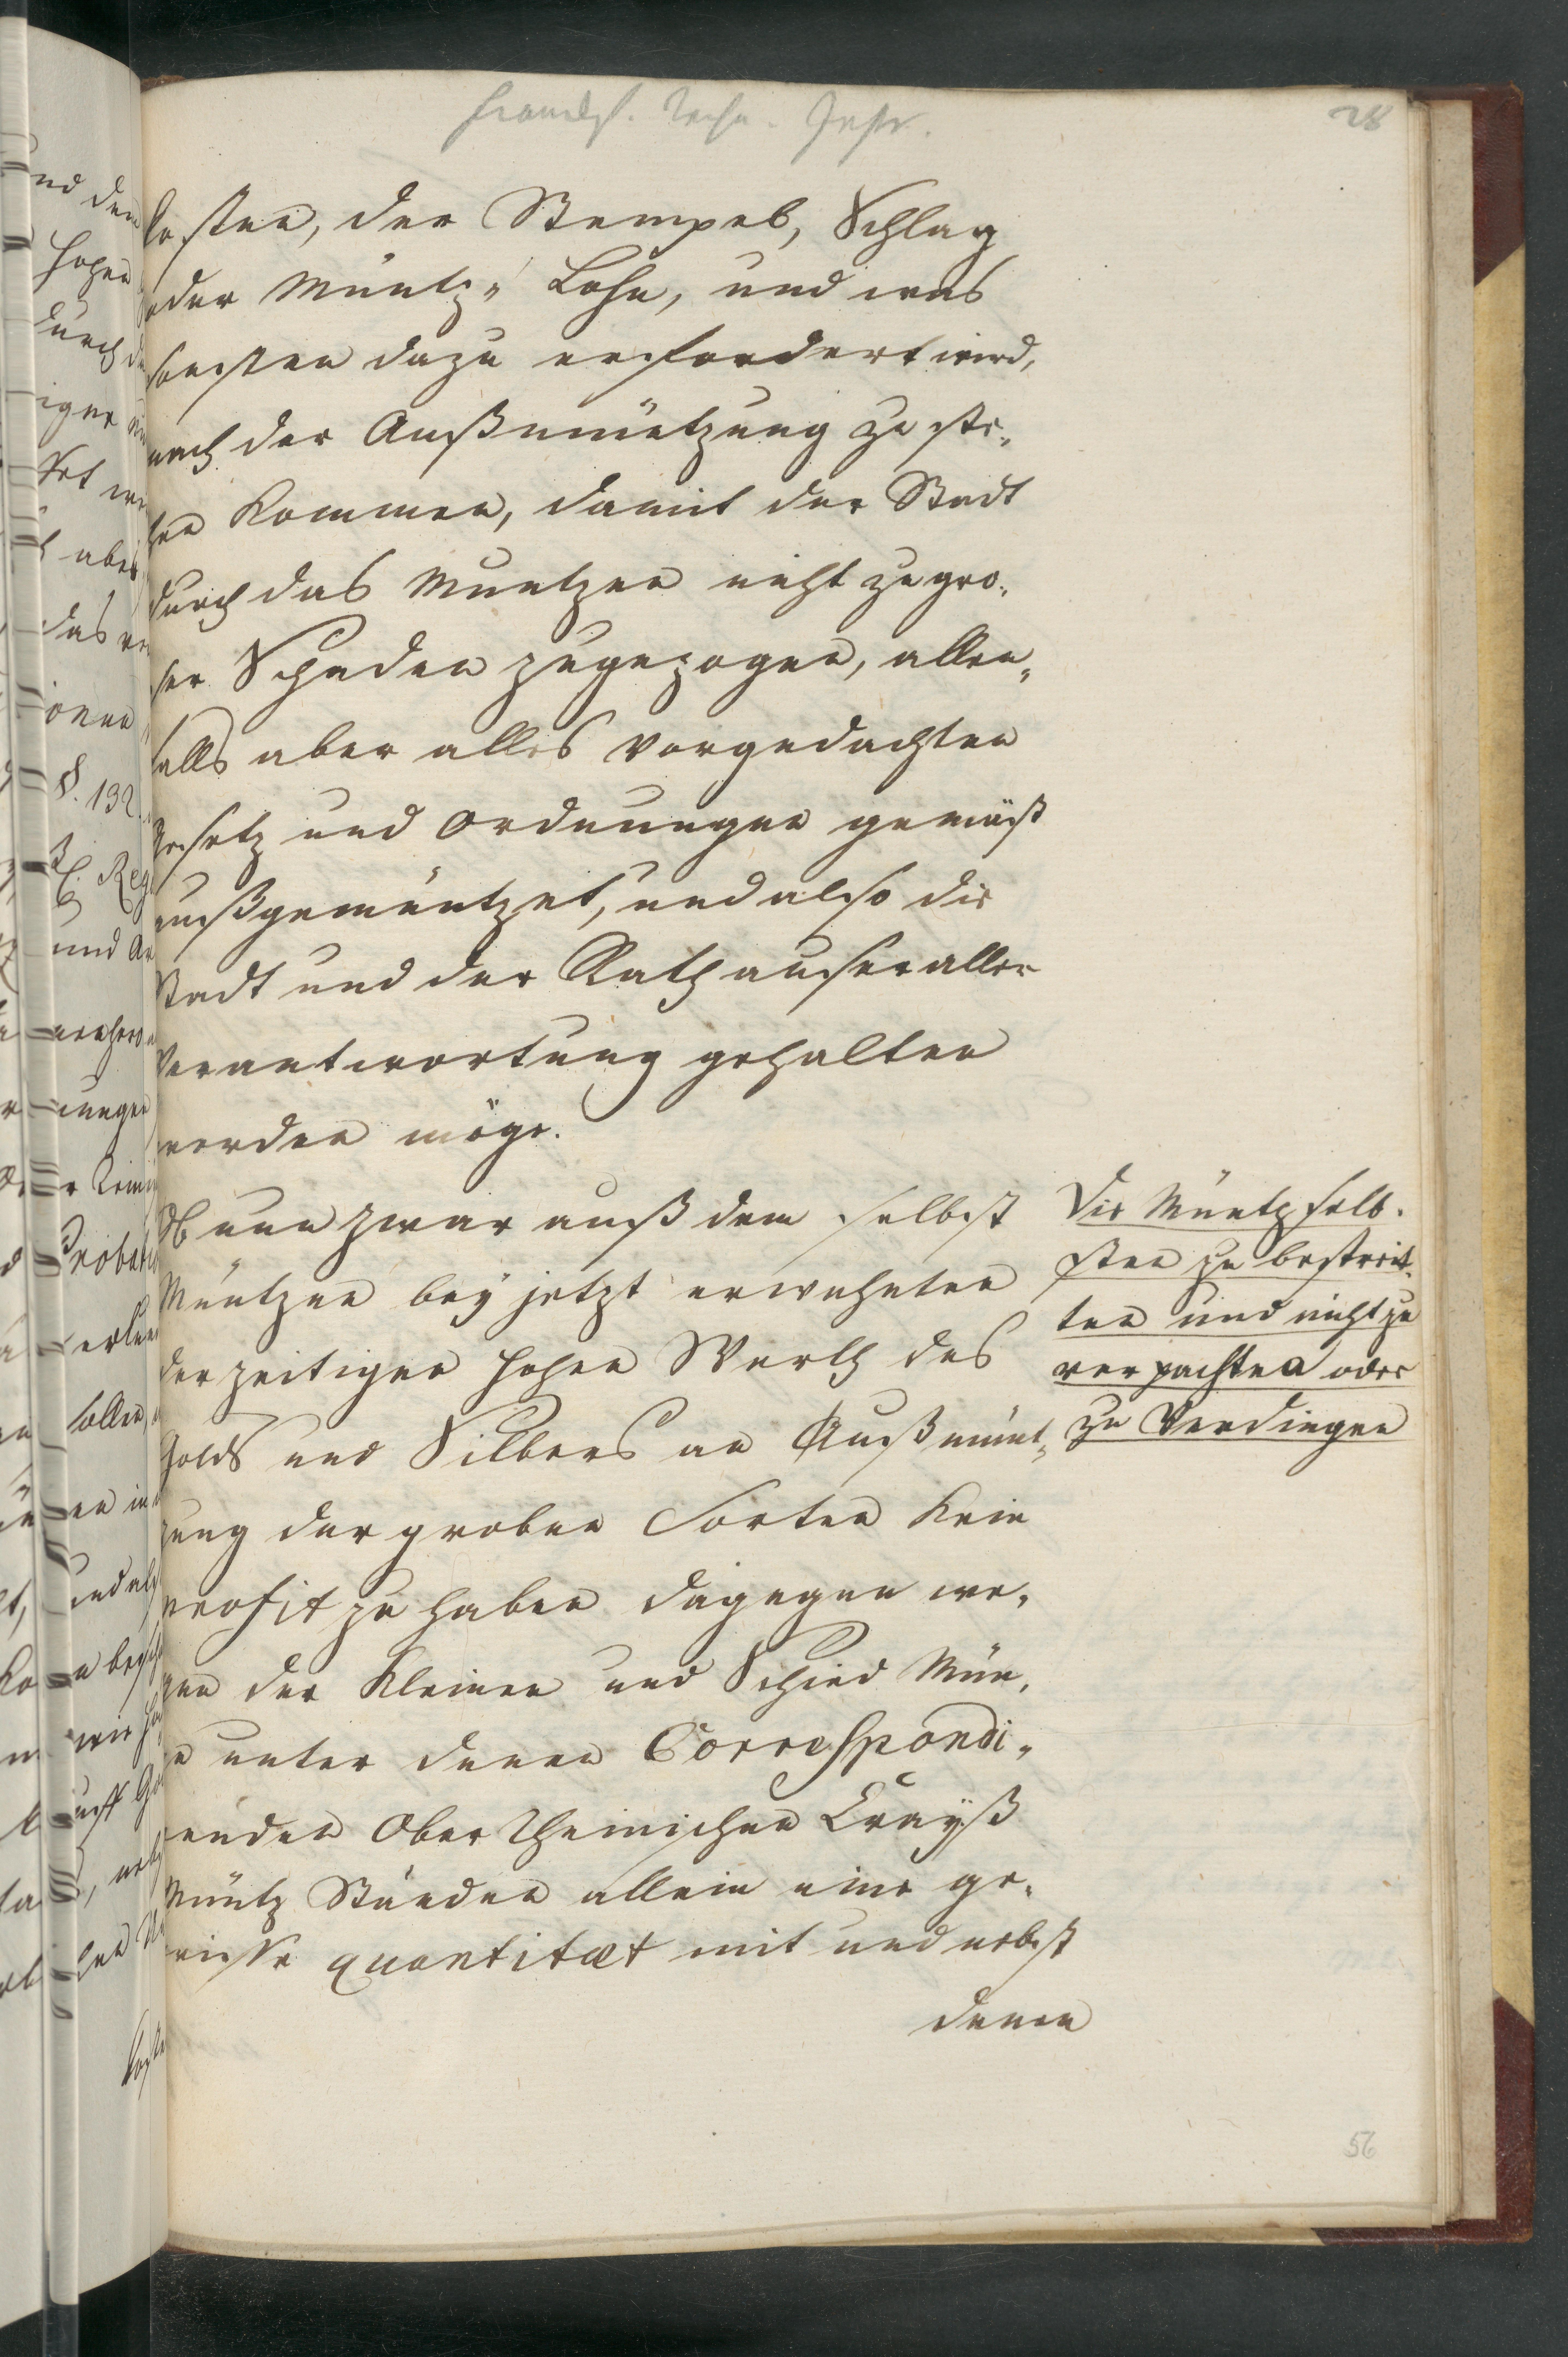 28
kosten, der Stempels, Schlag
oder Müntz„ Lohn, und was
sonsten dazu erfordert wird,
nach der Außmüntzung zu ste„
hen kommen, damit der Stadt
durch das Muntzen nicht zu gro„
ser Schaden zugezogen, allen„
falls aber alles vorgedachten
Gesetz und Ordnungen gemäß
außgemüntzet, und also die
Stadt und der Rath auser aller
Verantwortung gehalten
werden möge.
Ob nun zwar auß dem selbst
Müntzen bey jetzt erwehnten
derzeitigen hohen Werth des
Golds und Silbers an Außmünt„
zung der groben Sorten kein
profit zu haben dagegen we„
gen der kleinen und Schied Mün„
ze unter denen Correspondi„
renden Ober Rheinischen Crayß
Müntz Ständen allein eine ge„
wisse quantitæt mit und nebst
denen
Die Müntz selb„
sten zu bestreit„
ten und nicht zu
verpachten oder
zu Verdingen
56